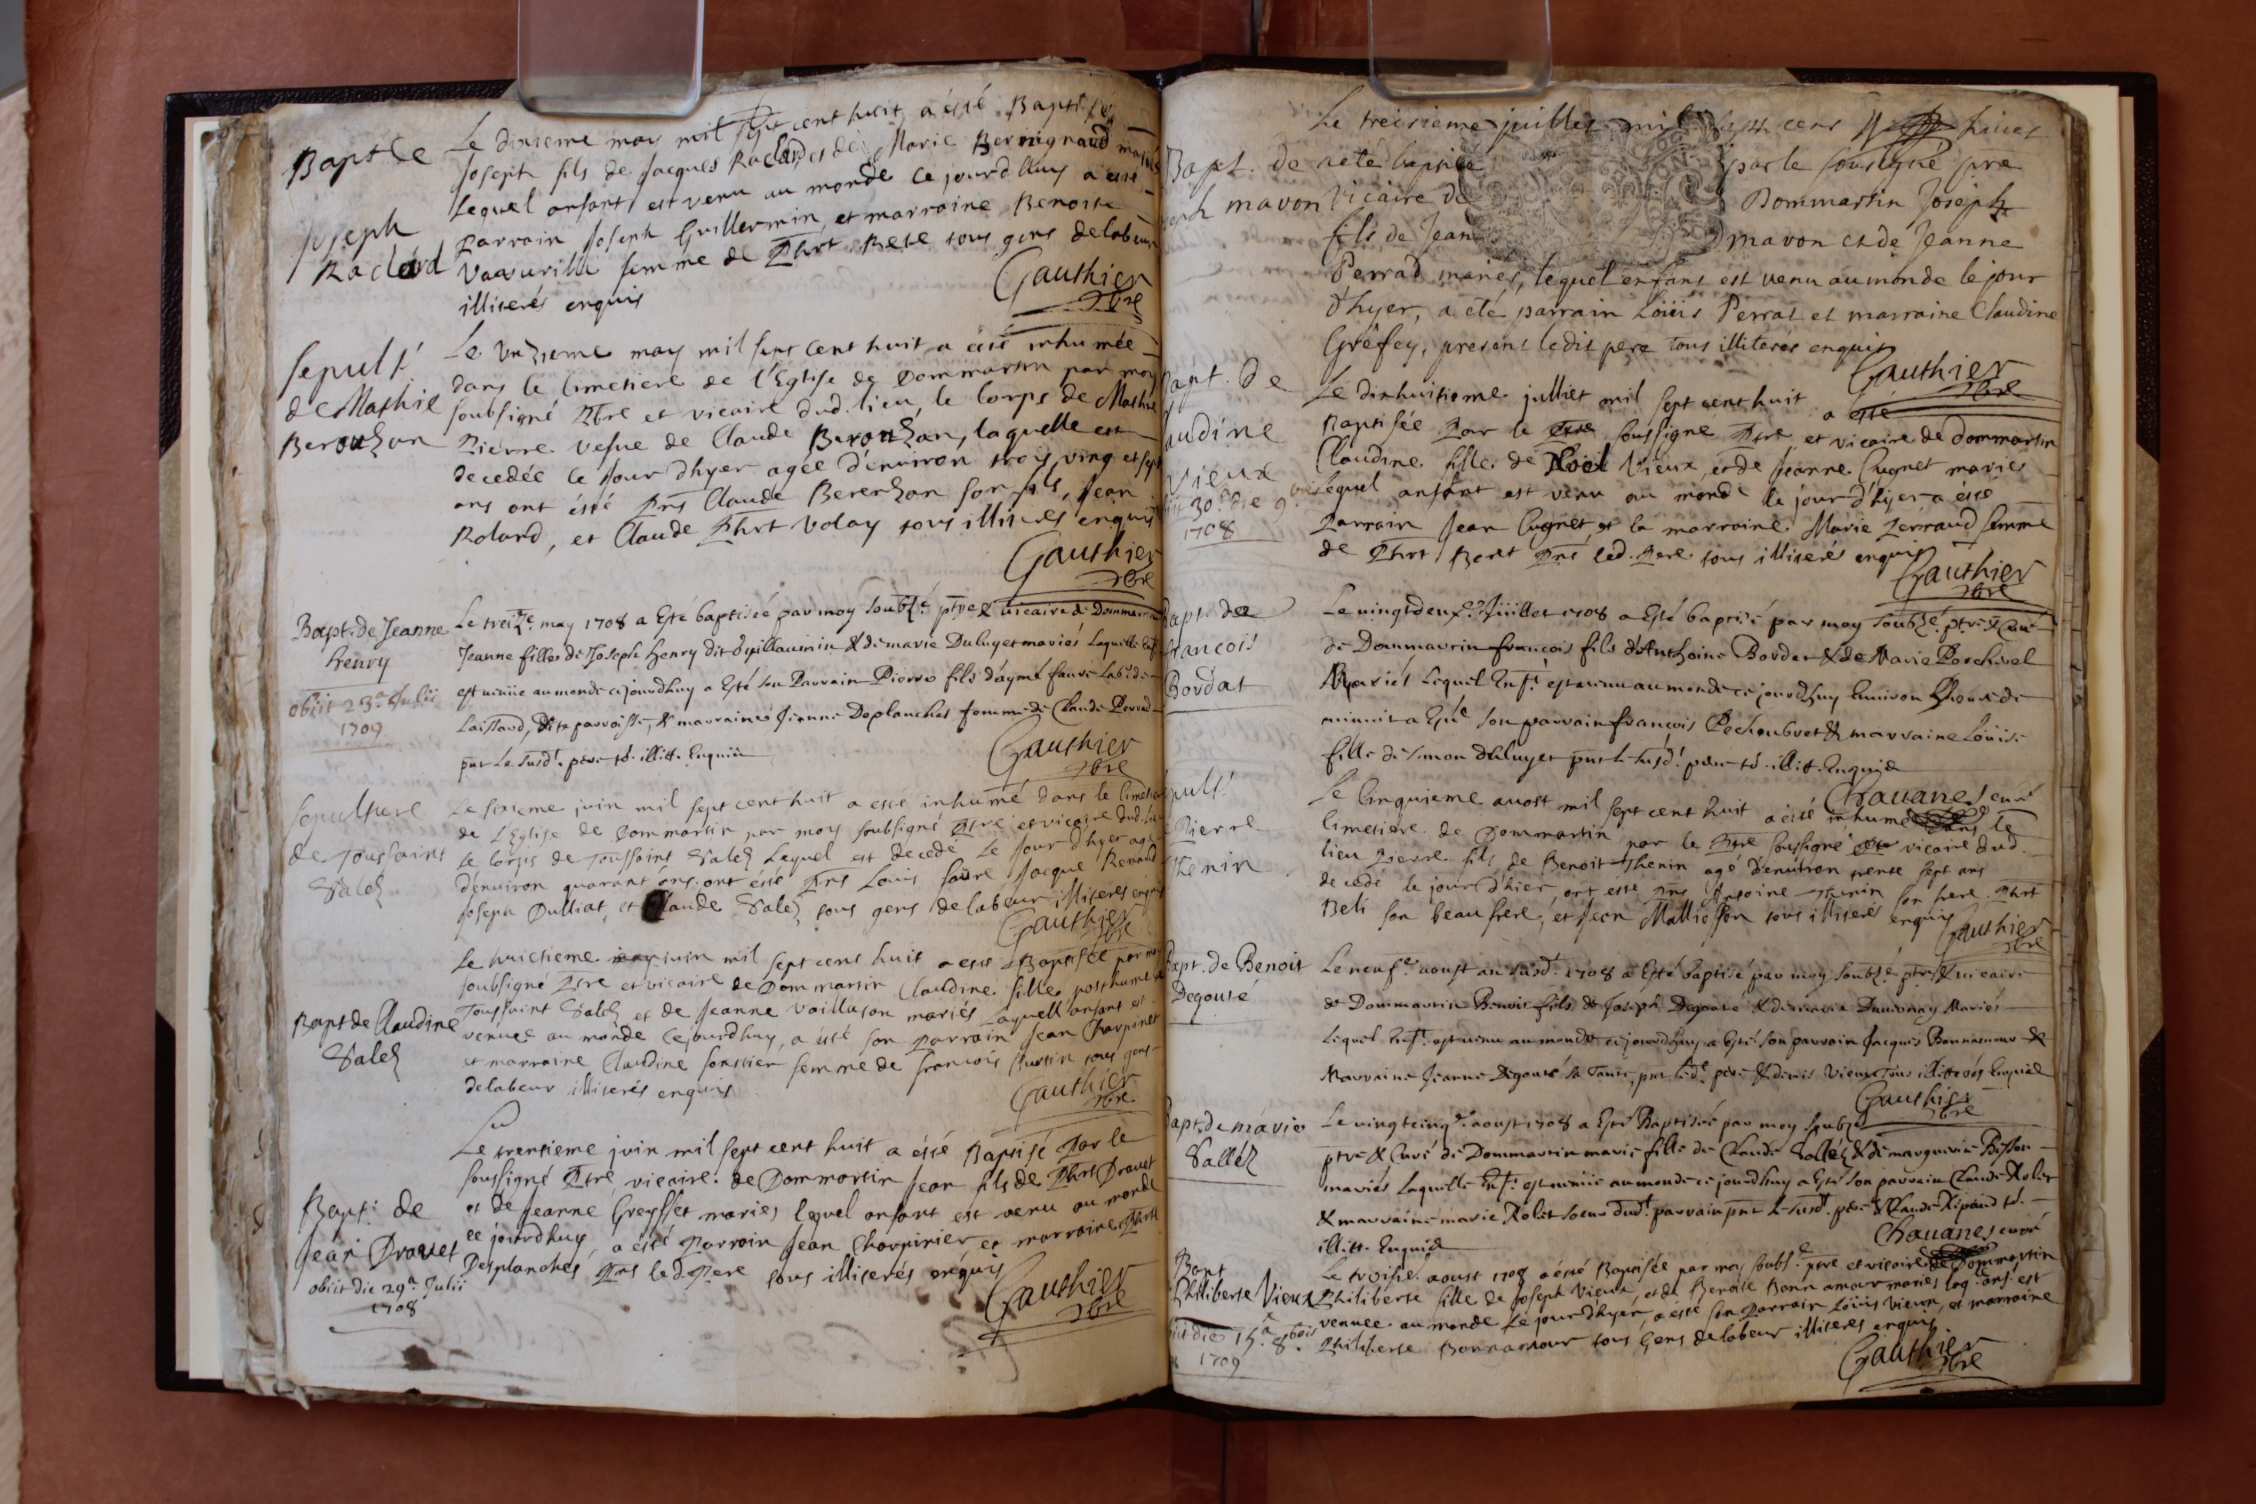 Baptse
Joseph
Raclard
Le dixieme may mil sept cent huit a ésté Baptisé
Joseph fils de Jacques Raclard et de Marie Bernignaud mariés
Lequel anfant est venu au monde ce jourdhuy a esté
Parrain Joseph Guillermin et marraine Benoite
femme de Phrt Bete tous gens de labeur
illiterés enquis
Gauthier
ptre
Sepult'
de Mathie
Berouhan
Le Unzieme may mil sept cent huit a ésté inhumée
dans le Cimetiere de l'Eglise de Dommartin par moy
soubsigné Ptre et vicaire dud. lieu le Corps de Mathie
Pierre vefue de Claude Berouhan, laquelle est
decedée le jour d'hyer agée d'environ troys ving et sept
ans ont ésté Pns Claude Berouhan son fils, Jean
Rolard, et Claude Phrt Volay tous illiterés enquis
Gauthier
ptre
Bapt. de Jeanne
henry
obiit 28.a Julii
1709
Le treize may 1708 a Esté baptisée par moy soubzé. ptre & vicaire de Dommartin
Jeanne fille de Joseph henry dit Guillaumin & de marie Duluyet mariés Laquelle Enft
est venüe au monde cejourdhuy a Esté son Parrain Pierre fils d'aymé faure Labr. de
Laissard, dite parroisse, & marraine Jeanne Deplanches femme de Claude Perrad
pnt Le susdt. pere ts. illitt. Enquis
Gauthier
ptre
Sepulture
de Toussaint
Saleh
Le sixieme juin mil sept cent huit a esté inhumé dans le Cimetiere
de L'Eglise de Dommartin par moy soubsigné Ptre et vicaire dud. lieu
Le Corps de Toussaint Saleh Lequel est decedé le jour d'hyer agé
d'environ quarant ans. ont ésté Pns Louis faure Jacque Renaud
Joseph Dulliat, et Claude Saleh tous gens de labeur illiterés enquis
Gauthier
ptre
Bapt de Claudine
Saleh
Le huictieme juin mil sept cent huit a esté Baptisée par moy
soubsigné Ptre et vicaire de Dommartin Claudine fille posthume de
Toussaint Saleh et de Jeanne Vaillason mariés Laquelle anfant est
venuee au monde Cejourdhuy, a ésté son Parrain Jean Charpinet
et marraine Claudine fonstier femme de francois Gurtin tous gens
de labeur illiterés enquis
Gauthier
ptre
Bapt. de
Jean Drouet
obiit die 29.a Julii
1708
Le trentieme juin mil sept cent huit a ésté Baptisé Par le
soussigné Ptre vicaire de Dommartin Jean fils de Phrt Drouet
et de Jeanne Greyffet mariés lequel anfant est venu au monde
ce jourdhuy, a ésté Parrain Jean Charpinet et marraine
Desplanches, Pns led Pere tous illiterés enquis
Gauthier
ptre
Bapt. de
mavon
Le treisieme juillet mil sept cens huict
a eté baptisé par le sousigné ptre
Vicaire de Dommartin Joseph
fils de Jean mavon et de Jeanne
Perrad mariés, lequel enfant est venu au monde le jour
d'hyer, a eté parrain Loüis Perrat et marraine Claudine
Gréfey, present ledit pere tous illiterés enquis
Gauthier
ptre
Bapt. de
Claudine
Vieux
30.a die 9.bris
1708
Le dixhuitiome julliet mil sept cent huit a esté
Baptisée Par le soussigné Ptre et vicaire de Dommartin
Claudine fille de Noël Vieux et de Jeanne Cugnet mariés
Lequel anfant est venu au monde le jour d'hyer a ésté
Parrain Jean Cugnet et la marraine Marie Perraud femme
de Phrt Beret Pns led. Pere tous illiterés enquis
Gauthier
ptre
Bapt. de
francois
Bordat
Le vingtdeuxe Juillet 1708 a Esté baptisé par moy soubzé. ptre & Curé
de Dommartin francois fils d'Anthoine Bordat & de Marie Perchevel
Mariés Lequel Enft. est venu au monde ce jourdhuy Environ Lheure de
minuit a Esté son parrain francois Pechoubret & marraine Loüise
fille de Simon Duluyet pnt le susd. pere ts. illitt. Enquis
Chauanes curé
Sepult'
de Pierre
Thenin
Le Cinquieme auost mil sept cent huit a ésté inhumé dans le
Cimetiere de Dommartin par le Ptre soussigné vicaire dud.
lieu Pierre fils de Benoit Thenin agé d'environ trente sept ans
decedé le jour d'hier ont esté Pns Antoine Thenin son frere. Phrt
Beti son beaufrere, et Jean Mallieson tous illiterés enquis
Gauthier
ptre
Bapt. de Benoit
Degouté
Le neufe. aoust an susdt. 1708 a Esté baptisé par moy soubzé. ptre & vicaire
de Dommartin Benoit fils de Joseph Degouté & de marie Dauvergy Mariés
Lequel Enft. est venu au monde ce jourdhuy a Esté son parrain Jacques Bonnamour &
Marraine Jeanne Degouté sa tante, pnt Ledt. pere & denis Vieux tous illiterés Enquis
Gauthier
ptre
Bapt. de marie
Salléh
Le vingtcinqe. aoust 1708 a Esté Baptisée par moy soubzé
ptre & Curé de Dommartin marie fille de Claude Salléh & de marguerite Bisson
mariés Laquelle Enft. est venüe au monde ce jourdhuy a Esté son parrain Claude Rolet
& marraine marie Rolet soeur dudt. parrain pnt Le susdt. pere & Claude Ripaud ts.
illitt. Enquis
Chauanes curé
Bapt
Philiberte Vieux
die 15.a 8.bris
1709
Le troisie. aoust 1708 a ésté Baptisée par moy soubse. ptre et vicaire de Dommartin
Philiberte fille de Joseph Vieux, et de Benoite Bonn amour mariés laq. anf. est
venuee au monde Le jour d'hyer, a ésté son Parrain Loüis Vieux, et marraine
Philiberte Bonnamour tous Gens de labeur illiterés enquis
Gauthier
ptre